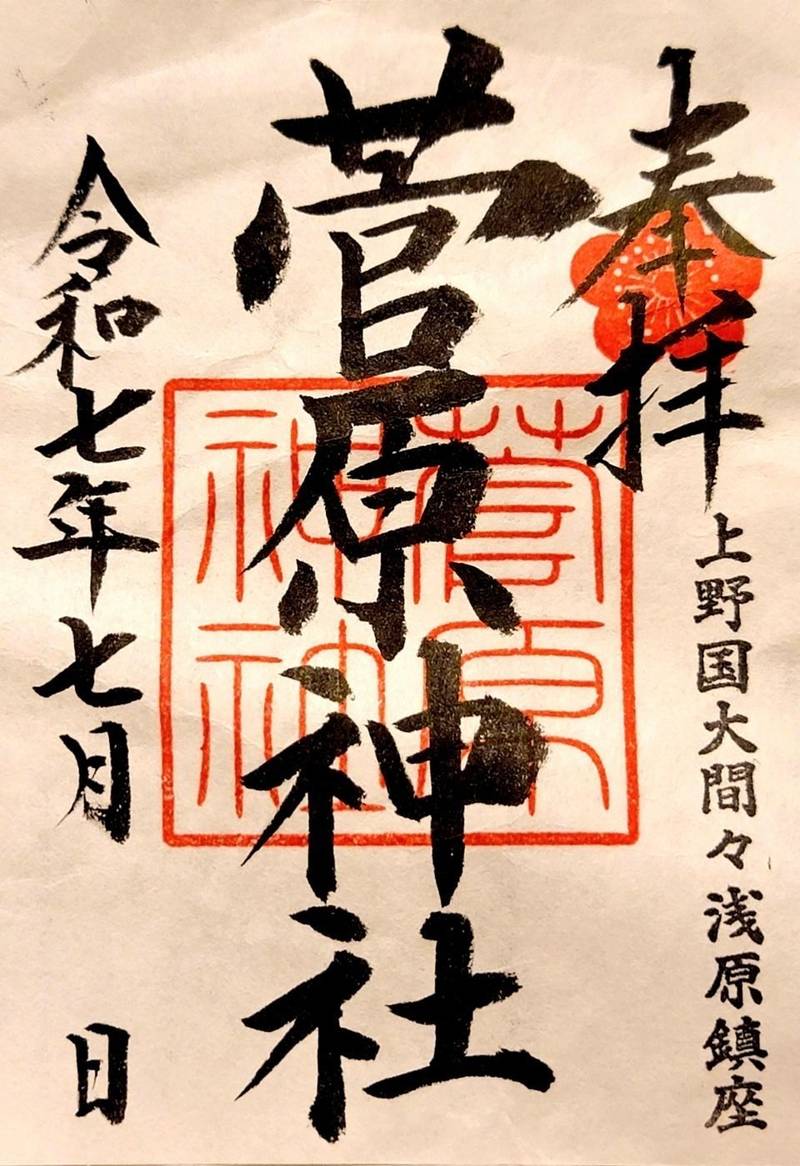 奉拝
上野国大間々浅原鎮座
菅原神社
菅原神社
令和七年七月 日